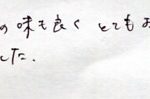 の味も良く とても
した.